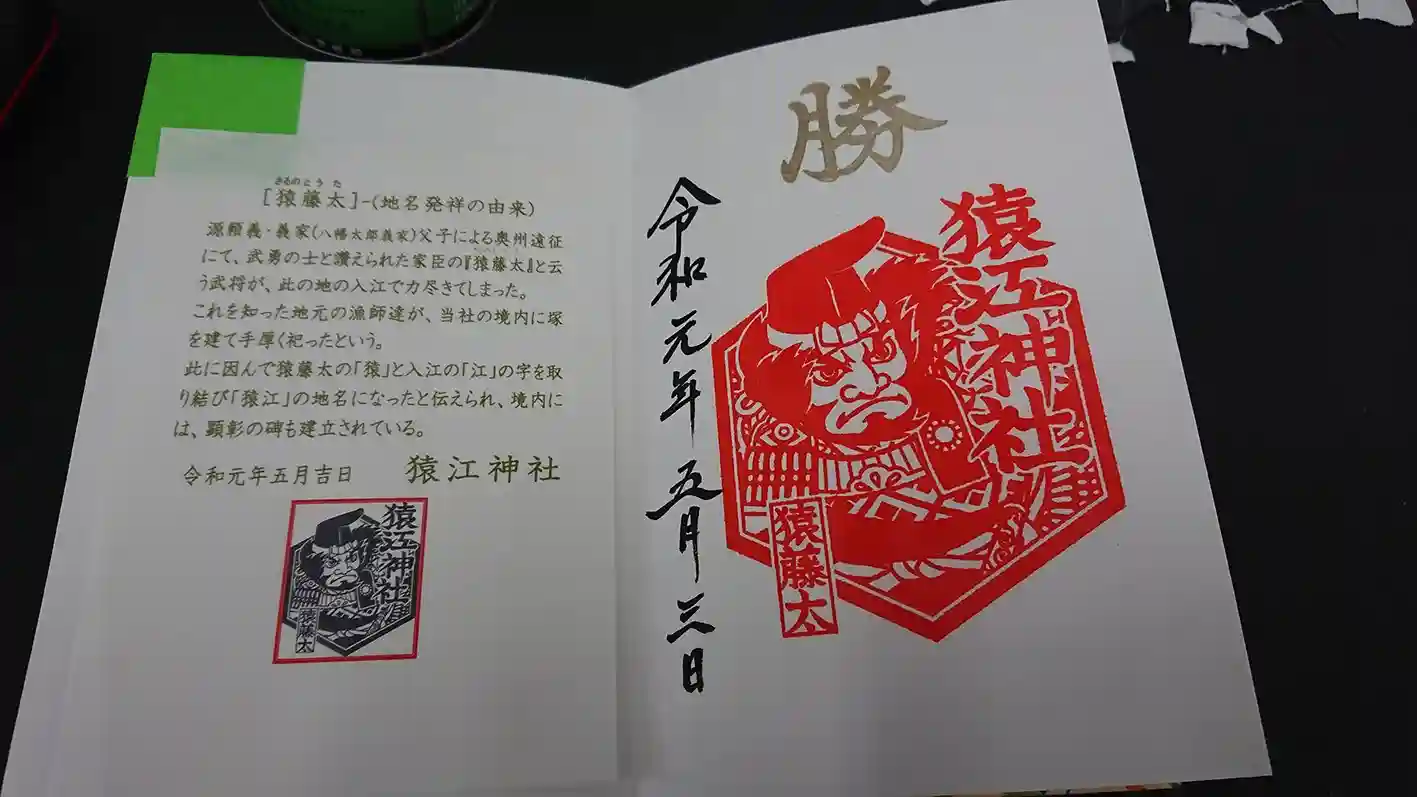 さるのとうた
[猿藤太]-(地名発祥の由来)
源頼義・義家(八幡太郎義家)父子による奥州遠征
にて、武勇の士と讃えられた家臣の『猿藤太』と云
う武将が、此の地の入江で力尽きてしまった。
これを知った地元の漁師達が、当社の境内に塚
を建て手厚く祀ったという。
此に因んで猿藤太の「猿」と入江の「江」の字を取
り結び「猿江」の地名になったと伝えられ、境内に
は、顕彰の碑も建立されている。
令和元年五月吉日 猿江神社
猿江神社
猿藤太
勝
猿江神社
猿藤太
令和元年五月三日